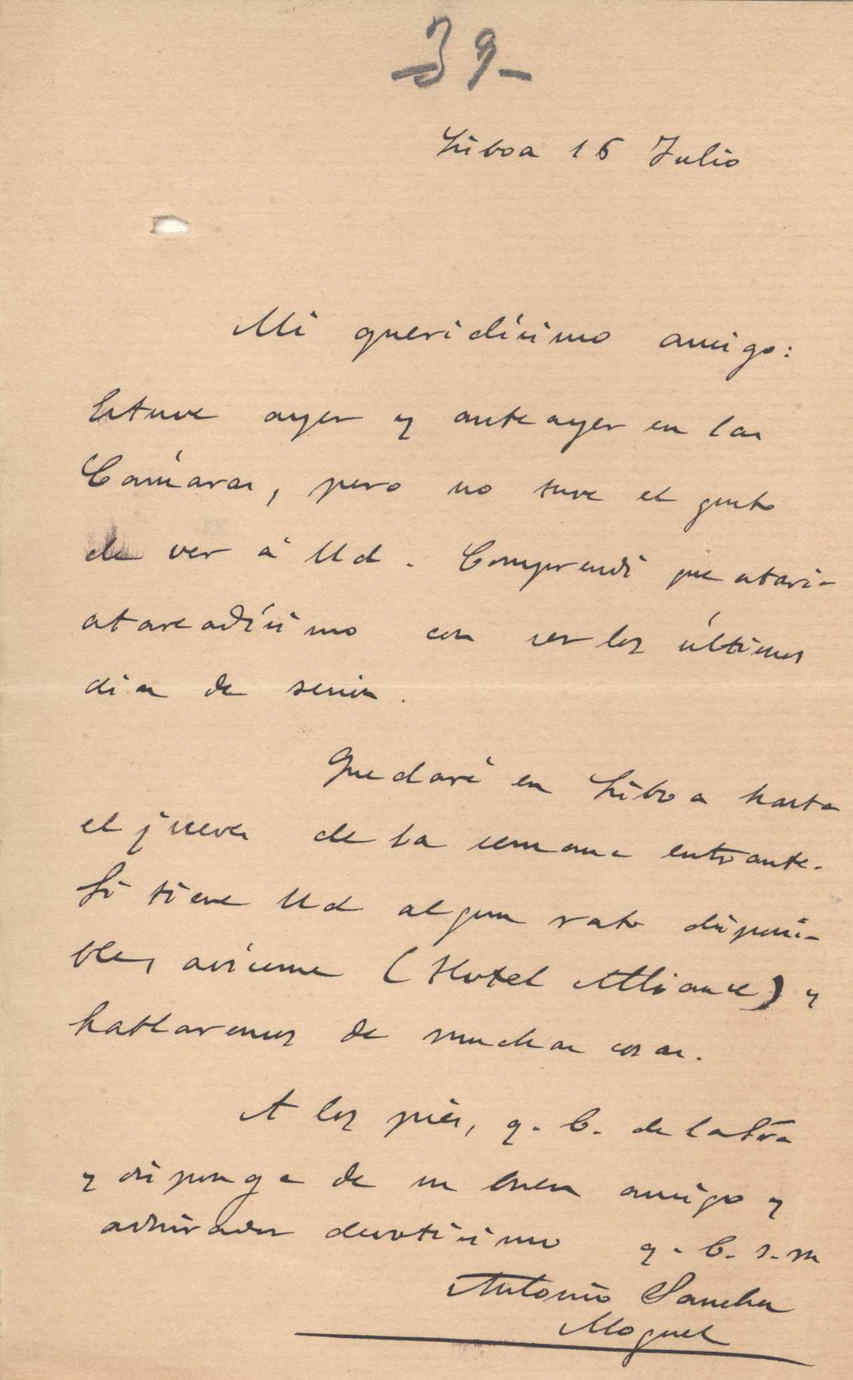 -39-
Lisboa 16 Julio
Mi queridísimo amigo:
Estuve ayer y anteayer en las
Cámaras, pero no tuve el gusto
de ver á Ud. Comprendí que estaria
atareadísimo con ser los últimos
dias de sesion.
Quedaré en Lisboa hasta
el jueves de la semana entrante.
Si tiene Ud algun rato disponi-
bles, avíseme (Hotel Alliance) y
hablaremos de muchas cosas.
A los piés, q. b. de la Sra
y disponga de su buen amigo y
admirador devotísimo q. b. s. m
Antonio Sanchez
Moguel